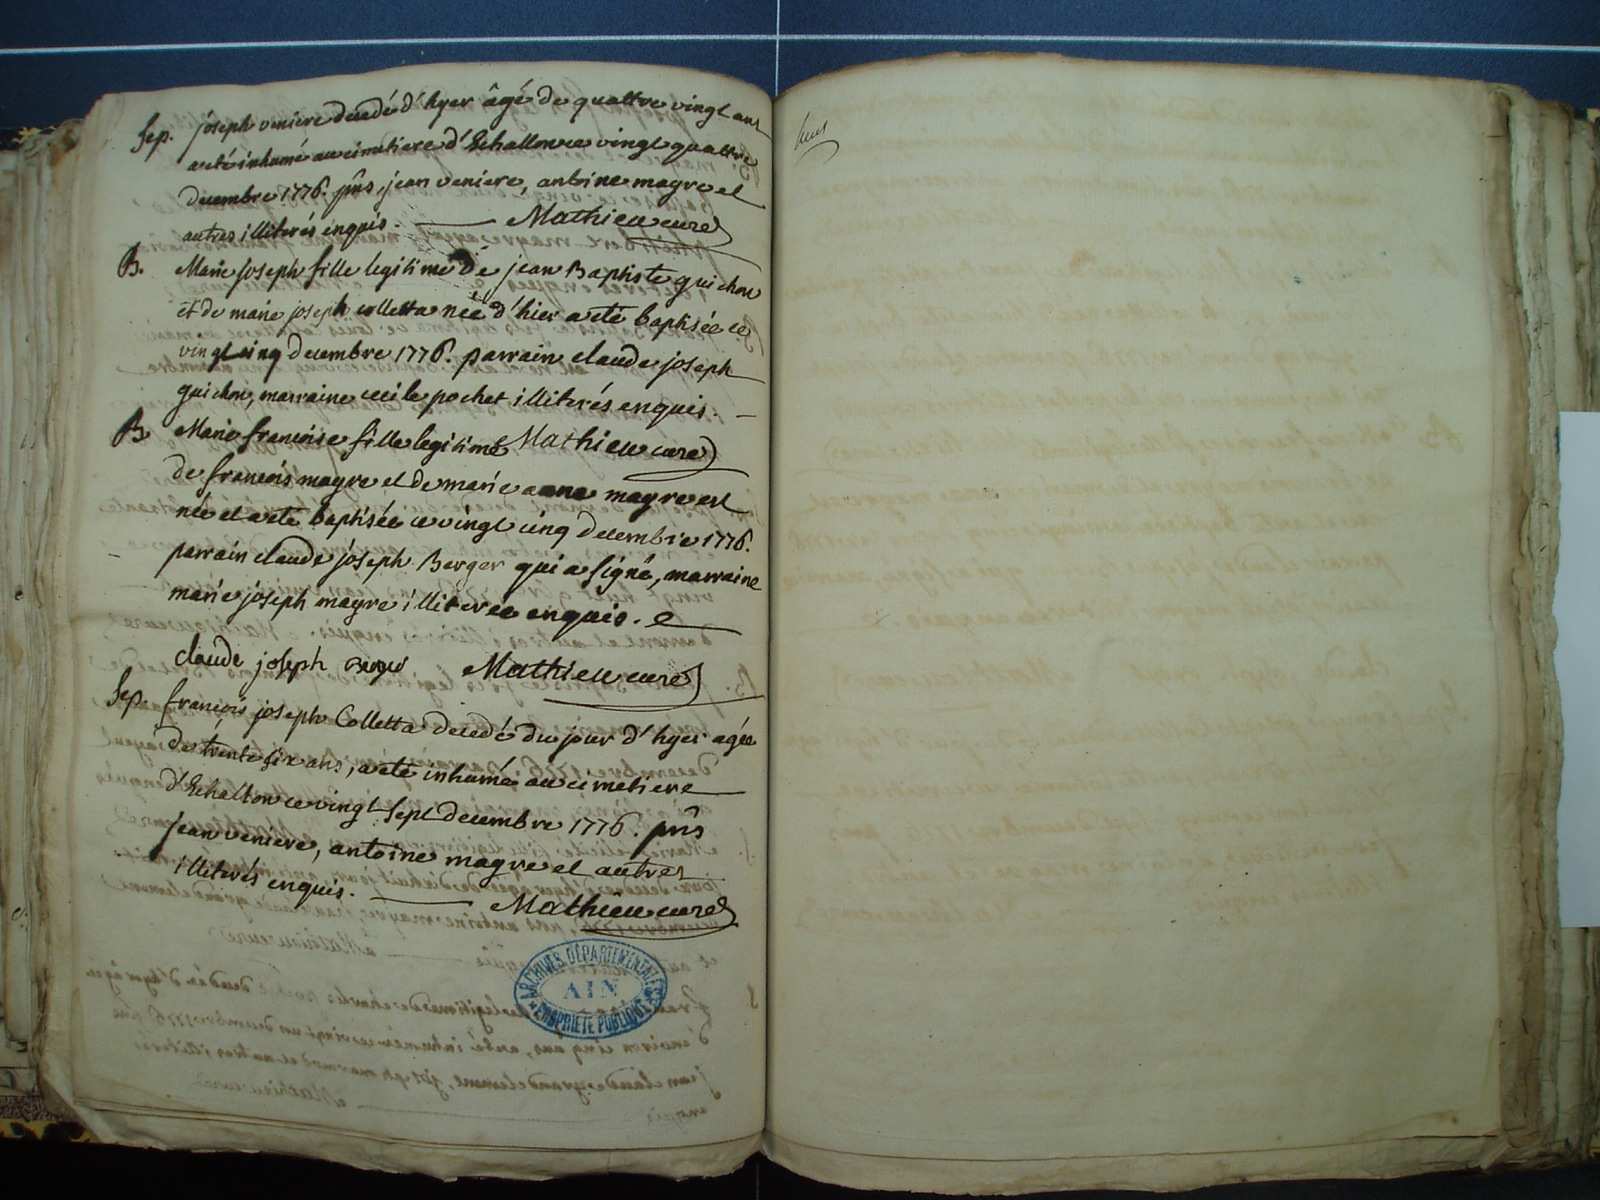 Sep. joseph veniere decedé d'hyer âgé de quattre vingt ans
a eté inhumé au cimetiere d'Echallon ce vingt quattre
decembre 1776. pñs jean veniere, antoine magre et
autres illiterés enquis. Mathieu curé
B. Marie joseph fille legitime de jean Baptiste guichon
et de marie joseph colletta née d'hier a eté baptisée ce
vingt cinq decembre 1776. parrain claude joseph
guichon, marraine cecile pochet illiterés enquis.
B. Marie francoise fille legitime Mathieu curé
de francois magre et de marie anne magre est
née et a eté baptisée ce vingt cinq decembre 1776.
parrain claude joseph Berger qui a signé, marraine
marie joseph magre illiterée enquis.
claude joseph Berger Mathieu curé
Sep. francois joseph Colletta decedé du jour d'hyer agée
de trente six ans, a eté inhumé au cimetiere
d'Echallon ce vingt sept decembre 1776. pñs
jean veniere, antoine magre et autres
illiterés enquis. Mathieu curé
ARCHIVES DÉPARTEMENTALES
AIN
PROPRIÉTÉ PUBLIQUE